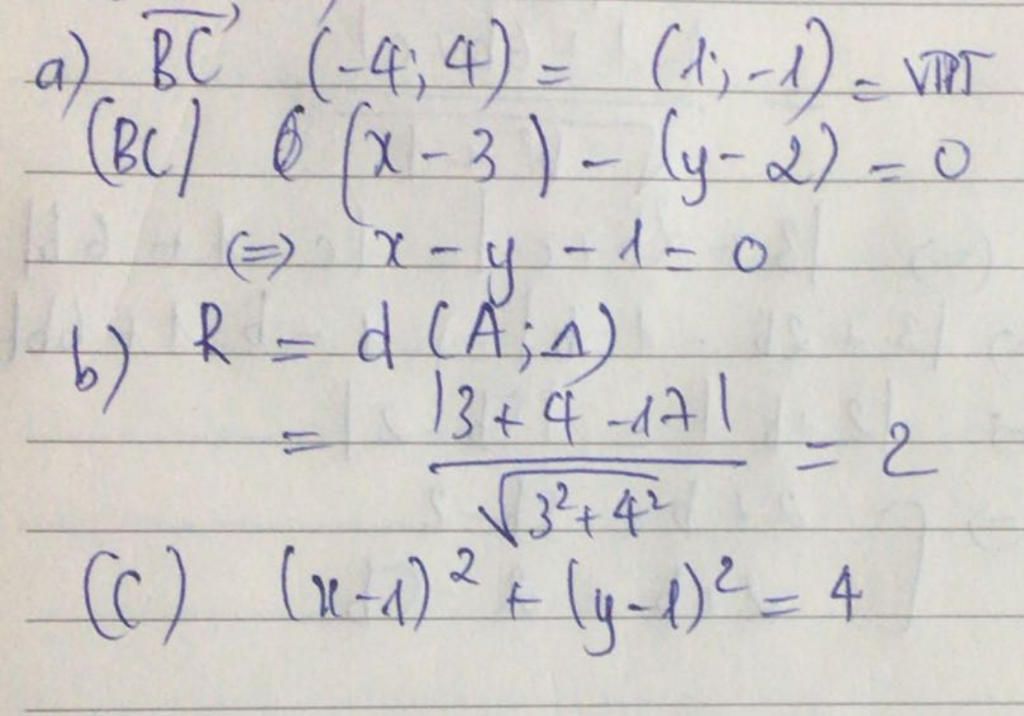 a) \overrightarrow{BC} (-4; 4) = (1; -1) = VTPT
(BC) (x - 3) - (y - 2) = 0
(=) x - y - 1 = 0
b) R = d (A; Δ)
= |3 + 4 - 17| / √(3² + 4²) = 2
(C) (x - 1)² + (y - 1)² = 4